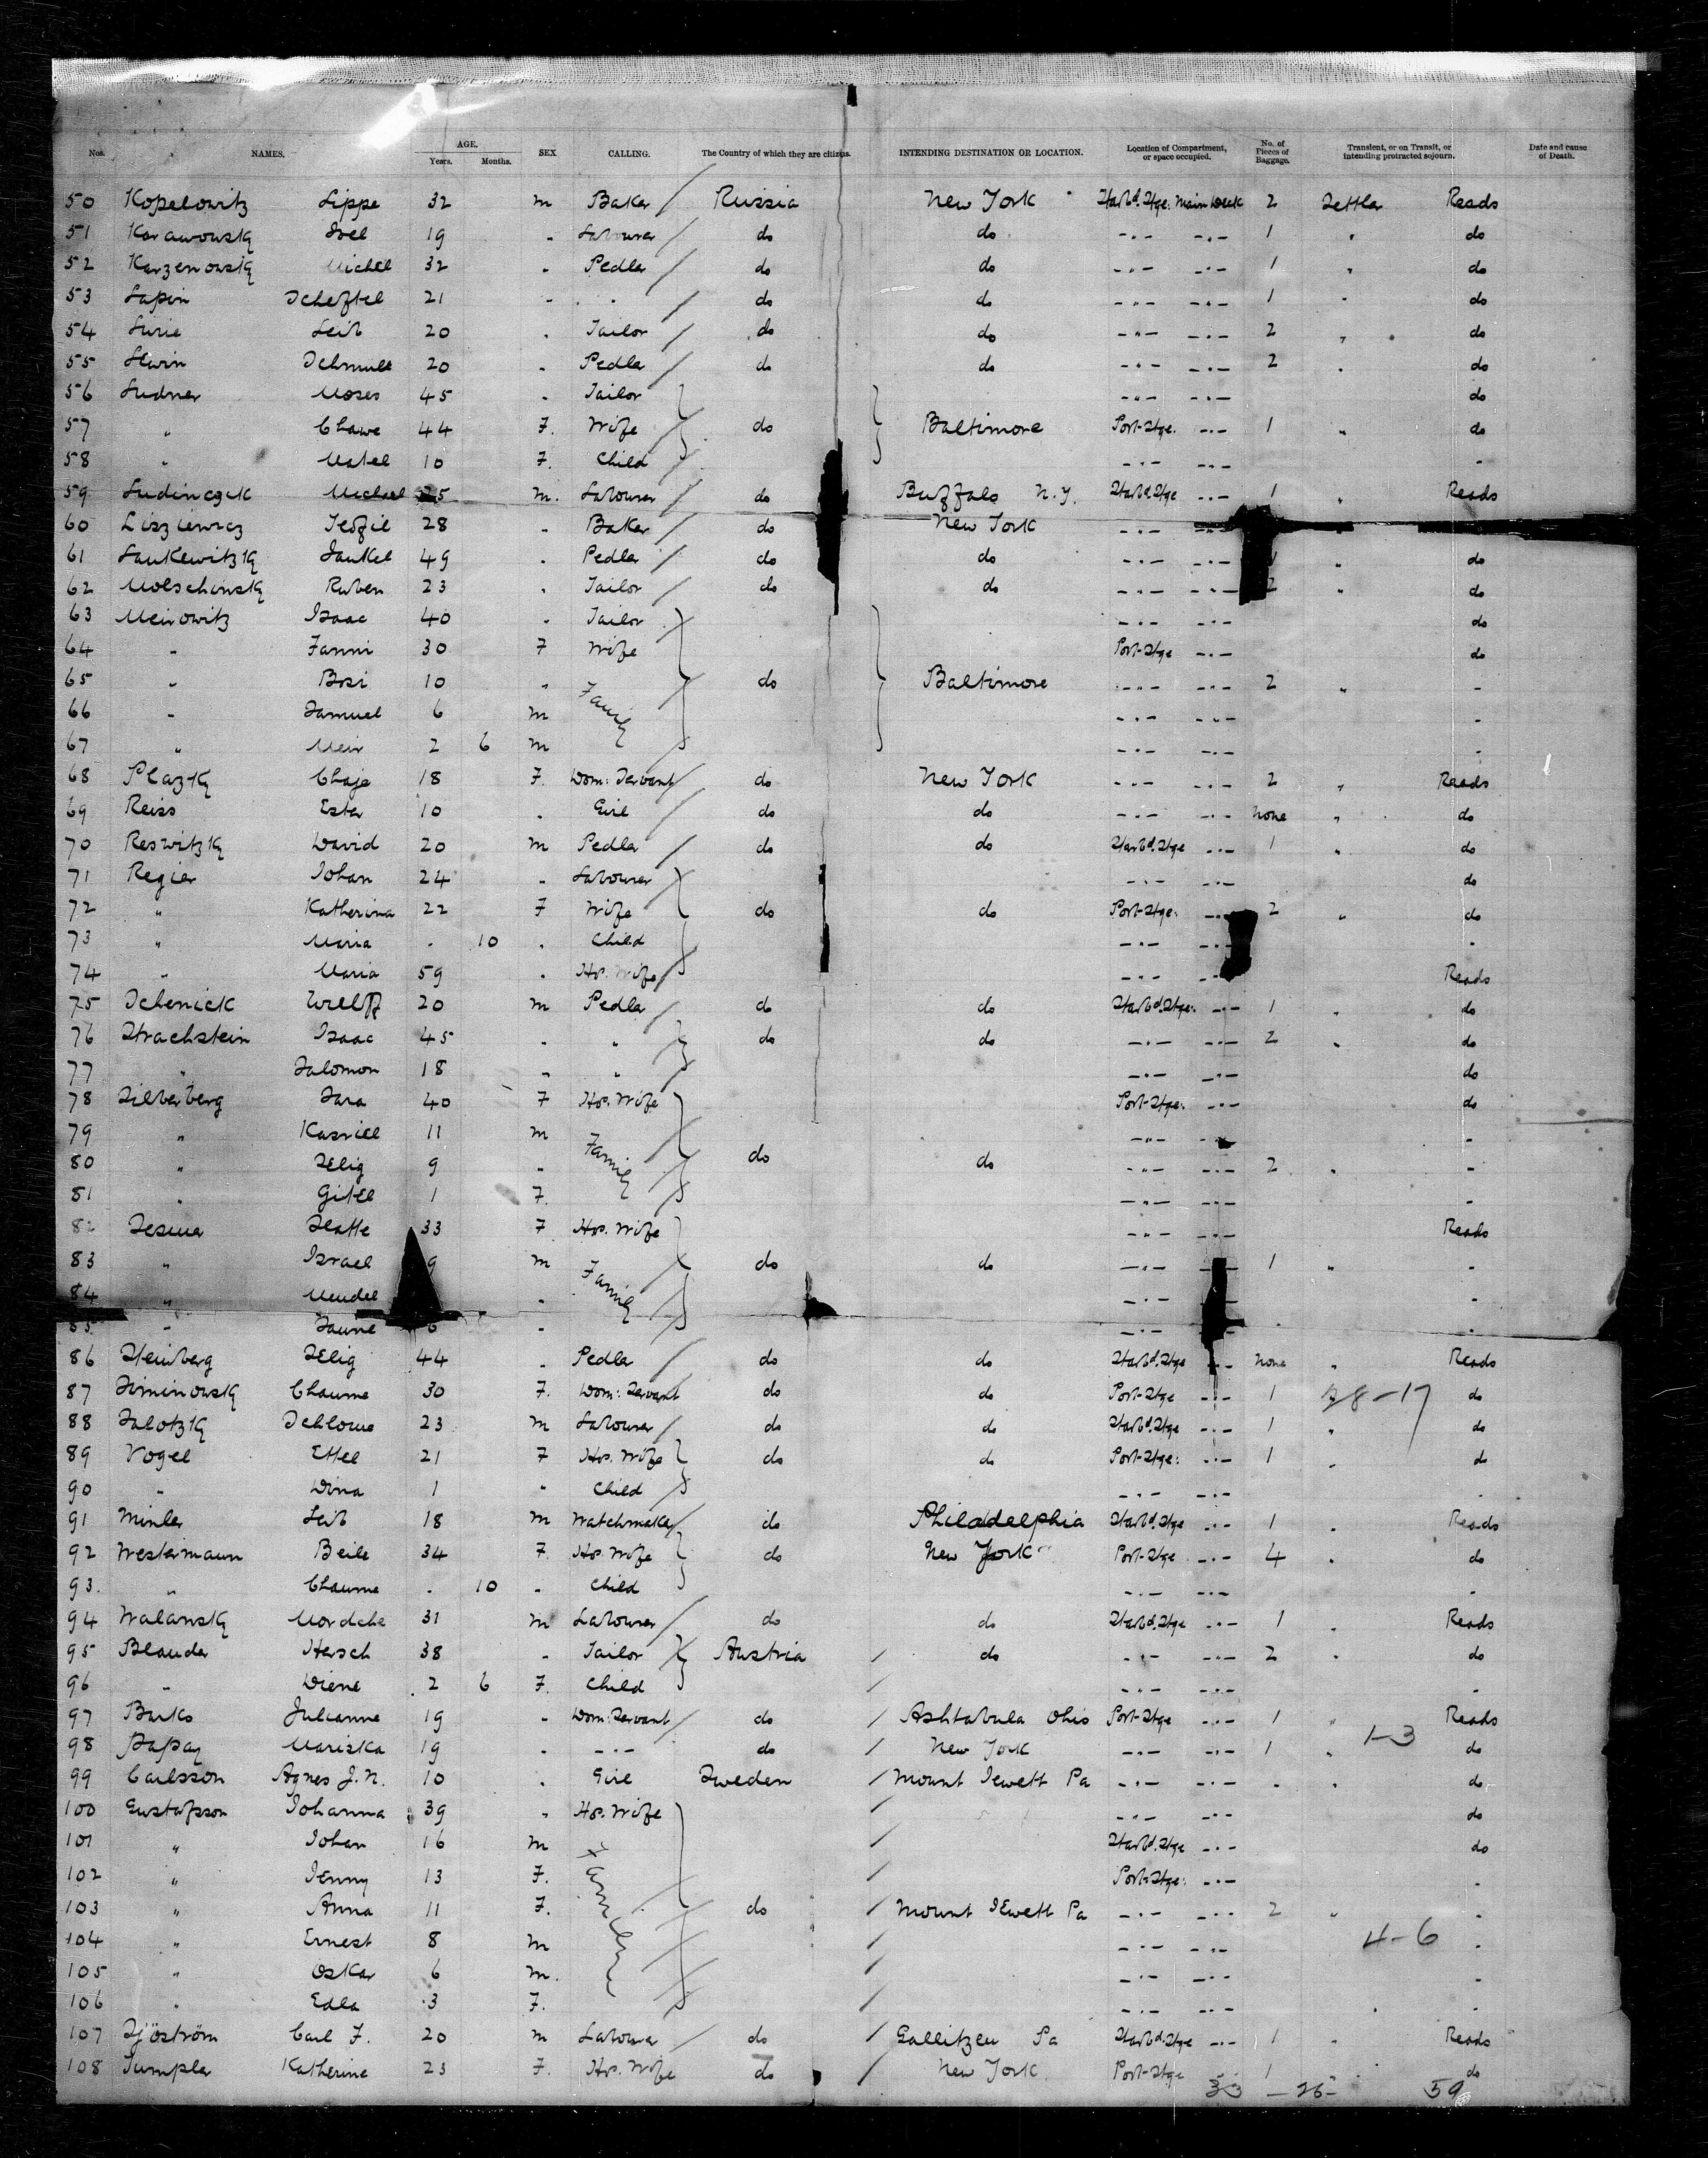 Nos. NAMES. AGE. Years. Months. SEX CALLING. The Country of which they are citizens. INTENDING DESTINATION OR LOCATION. Location of Compartment, or space occupied. No. of Pieces of Baggage. Transient, or on Transit, or intending protracted sojourn. Date and cause of Death.
50 Kopelowitz Lippe 32 m Baker Russia New York Starbd. Stge. Main Deck 2 Settler Reads
51 Karawowsky Joel 19 " Labourer do do -"- -"- 1 " do
52 Karzenowsky Michel 32 " Pedlar do do -"- -"- 1 " do
53 Lapin Scheftel 21 " " do do -"- -"- 1 " do
54 Lurie Leib 20 " Tailor do do -"- -"- 2 " do
55 Lewin Schmull 20 " Pedlar do do -"- -"- 2 " do
56 Ludner Moses 45 " Tailor -"- -"- do
57 " Chawe 44 F. Wife do Baltimore Port-Stge. -"- 1 " do
58 " Matel 10 F. Child -"- -"- "
59 Ludinczik Michael m. Labourer do Buffalo N.Y. Starbd. Stge -"- 1 " Reads
60 Lisziewicz 28 " Baker do New York -"- -"-
61 Laukewitzky Jankel 49 " Pedlar do do -"- -"- " do
62 Molschinsky Ruben 23 " Tailor do do -"- -"- 2 " do
63 Meirowitz Isaac 40 " Tailor -"- -"- do
64 " Fanni 30 F Wife Port-Stge -"- do
65 " Bosi 10 " Family do Baltimore -"- -"- 2 " "
66 " Samuel 6 m -"- -"- "
67 " Meir 2 6 m -"- -"- "
68 Plazky Chaje 18 F. Dom: Servant do New York -"- -"- 2 " Reads
69 Reiss Ester 10 " Girl do do -"- -"- none " do
70 Reswitzky David 20 m Pedlar do do Starbd. Stge -"- 1 " do
71 Regier Johan 24 " Labourer -"- -"- do
72 " Katherina 22 F Wife do do Port-Stge: -"- 2 " do
73 " Maria " 10 " Child -"- -"- "
74 " Maria 59 " Hos. Wife -"- -"- Reads
75 Schenick Wulff 20 m Pedlar do do Starbd. Stge: -"- 1 " do
76 Strachstein Isaac 45 " " do do -"- -"- 2 " do
77 " Salomon 18 " " -"- -"- do
78 Silberberg Sara 40 F Hos. Wife Port-Stge: -"- do
79 " Kasriell 11 m Family -"- -"- "
80 " Selig 9 " do do -"- -"- 2 " "
81 " Gitel 1 F. -"- -"- "
82 33 F Hos. Wife -"- -"- Reads
83 " Israel 9 m Family do do -"- -"- 1 " "
84 " Mendel " -"- "
85 " " -"- "
86 Steinberg Selig 44 " Pedlar do do Starbd. Stge -"- none " Reads
87 Siminowsky Chaume 30 F. Dom: Servant do do Port-Stge -"- 1 " 28-17 do
88 Salotzky Schlome 23 m Labourer do do Starbd. Stge -"- 1 " do
89 Vogel Ettel 21 F Hos. Wife do do Port-Stge: -"- 1 " do
90 " Dina 1 " Child -"- -"- "
91 Minler Leib 18 m Watchmaker do Philadelphia Starbd. Stge -"- 1 " Reads
92 Westermann Beile 34 F. Hos. Wife do New York Port-Stge -"- 4 " do
93. " Chaume " 10 " Child -"- -"- "
94 Walansky Mordche 31 m Labourer do do Starbd. Stge -"- 1 " Reads
95 Blauder Hersch 38 " Tailor Austria do -"- -"- 2 " do
96 " Diene 2 6 F. Child -"- -"- "
97 Barko Julianne 19 " Dom: Servant do Ashtabula Ohio Port-Stge -"- 1 " Reads
98 Papay Mariska 19 " -"- do New York -"- -"- 1 " 1-3 do
99 Carlsson Agnes J.N. 10 " Girl Sweden Mount Jewett Pa -"- -"- " " do
100 Gustafsson Johanna 39 " Hos. Wife -"- -"- do
101 " Johan 16 m Family Starbd. Stge -"- do
102 " Jenny 13 F. Port-Stge: -"- "
103 " Anna 11 F. do Mount Jewett Pa -"- -"- 2 " "
104 " Ernest 8 m -"- -"- 4-6 "
105 " Oskar 6 m. -"- -"- "
106 " Edla 3 F. -"- -"- "
107 Sjöström Carl F. 20 m Labourer do Gallitzen Pa Starbd. Stge -"- 1 " Reads
108 Tumpler Katherine 23 F. Hos. Wife do New York Port-Stge -"- 1 " do
33 - 26 - 59